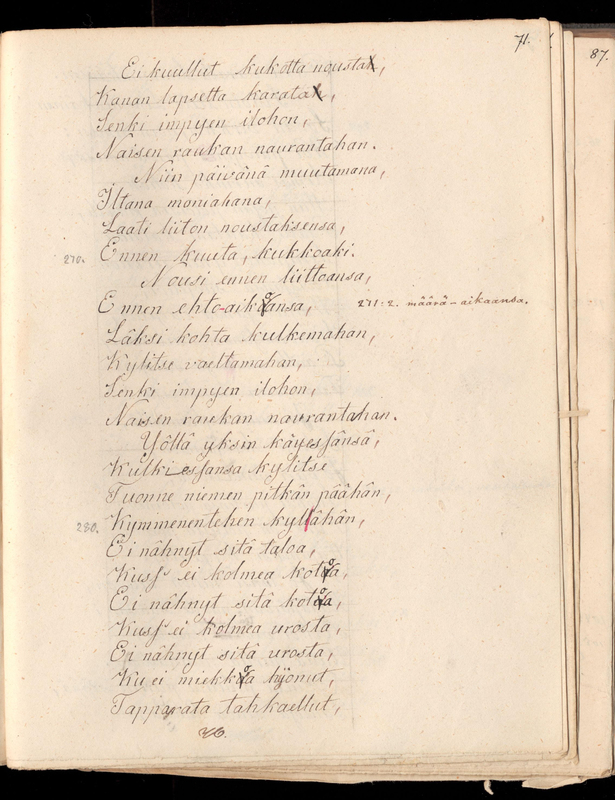 71.
87.
Ei kuullut kukotta noustax,
Kanan lapsetta karatax,
Senki impyen ilohon,
Naisen raukan naurantahan.
Niin päivänä muutamana,
Iltana moniahana,
Laati liiton noustaksensa,
270. Ennen kuuta, kukkoaki.
Nousi ennen liittoansa,
Ennen ehto-aikoansa, 271:2. määrä-aikaansa.
Läksi kohta kulkemahan,
Kylitse vaeltamahan,
Senki impyen ilohon,
Naisen raukan naurantahan.
Yöllä yksin käyessänsä,
Kulkiessansa kylitse
Tuonne niemen pitkän päähän,
280. Kymmenentehen kylähän,
Ei nähnyt sitä taloa,
Kuss' ei kolmea kotoa,
Ei nähnyt sitä kotoa,
Kuss' ei kolmea urosta,
Ei nähnyt sitä urosta,
Ku ei miekkoa hionut,
Tapparata tahkaellut,